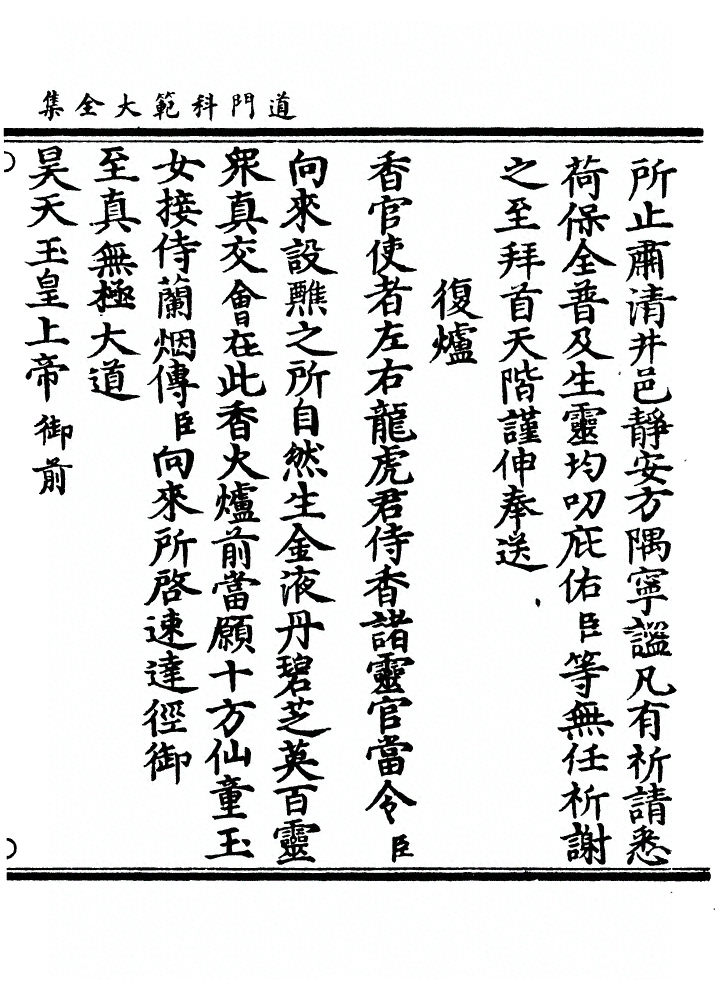 道門科範大全集
所止肅清井邑靜安方隅寧謐凡有祈請悉
荷保全普及生靈均叨庇佑臣等無任祈謝
之至拜首天階謹伸奉送
復爐
香官使者左右龍虎君侍香諸靈官當令臣
向來設醮之所自然生金液丹碧芝英百靈
衆真交會在此香火爐前當願十方仙童玉
女接侍蘭烟傳臣向來所啓速達徑御
至真無極大道
昊天玉皇上帝御前